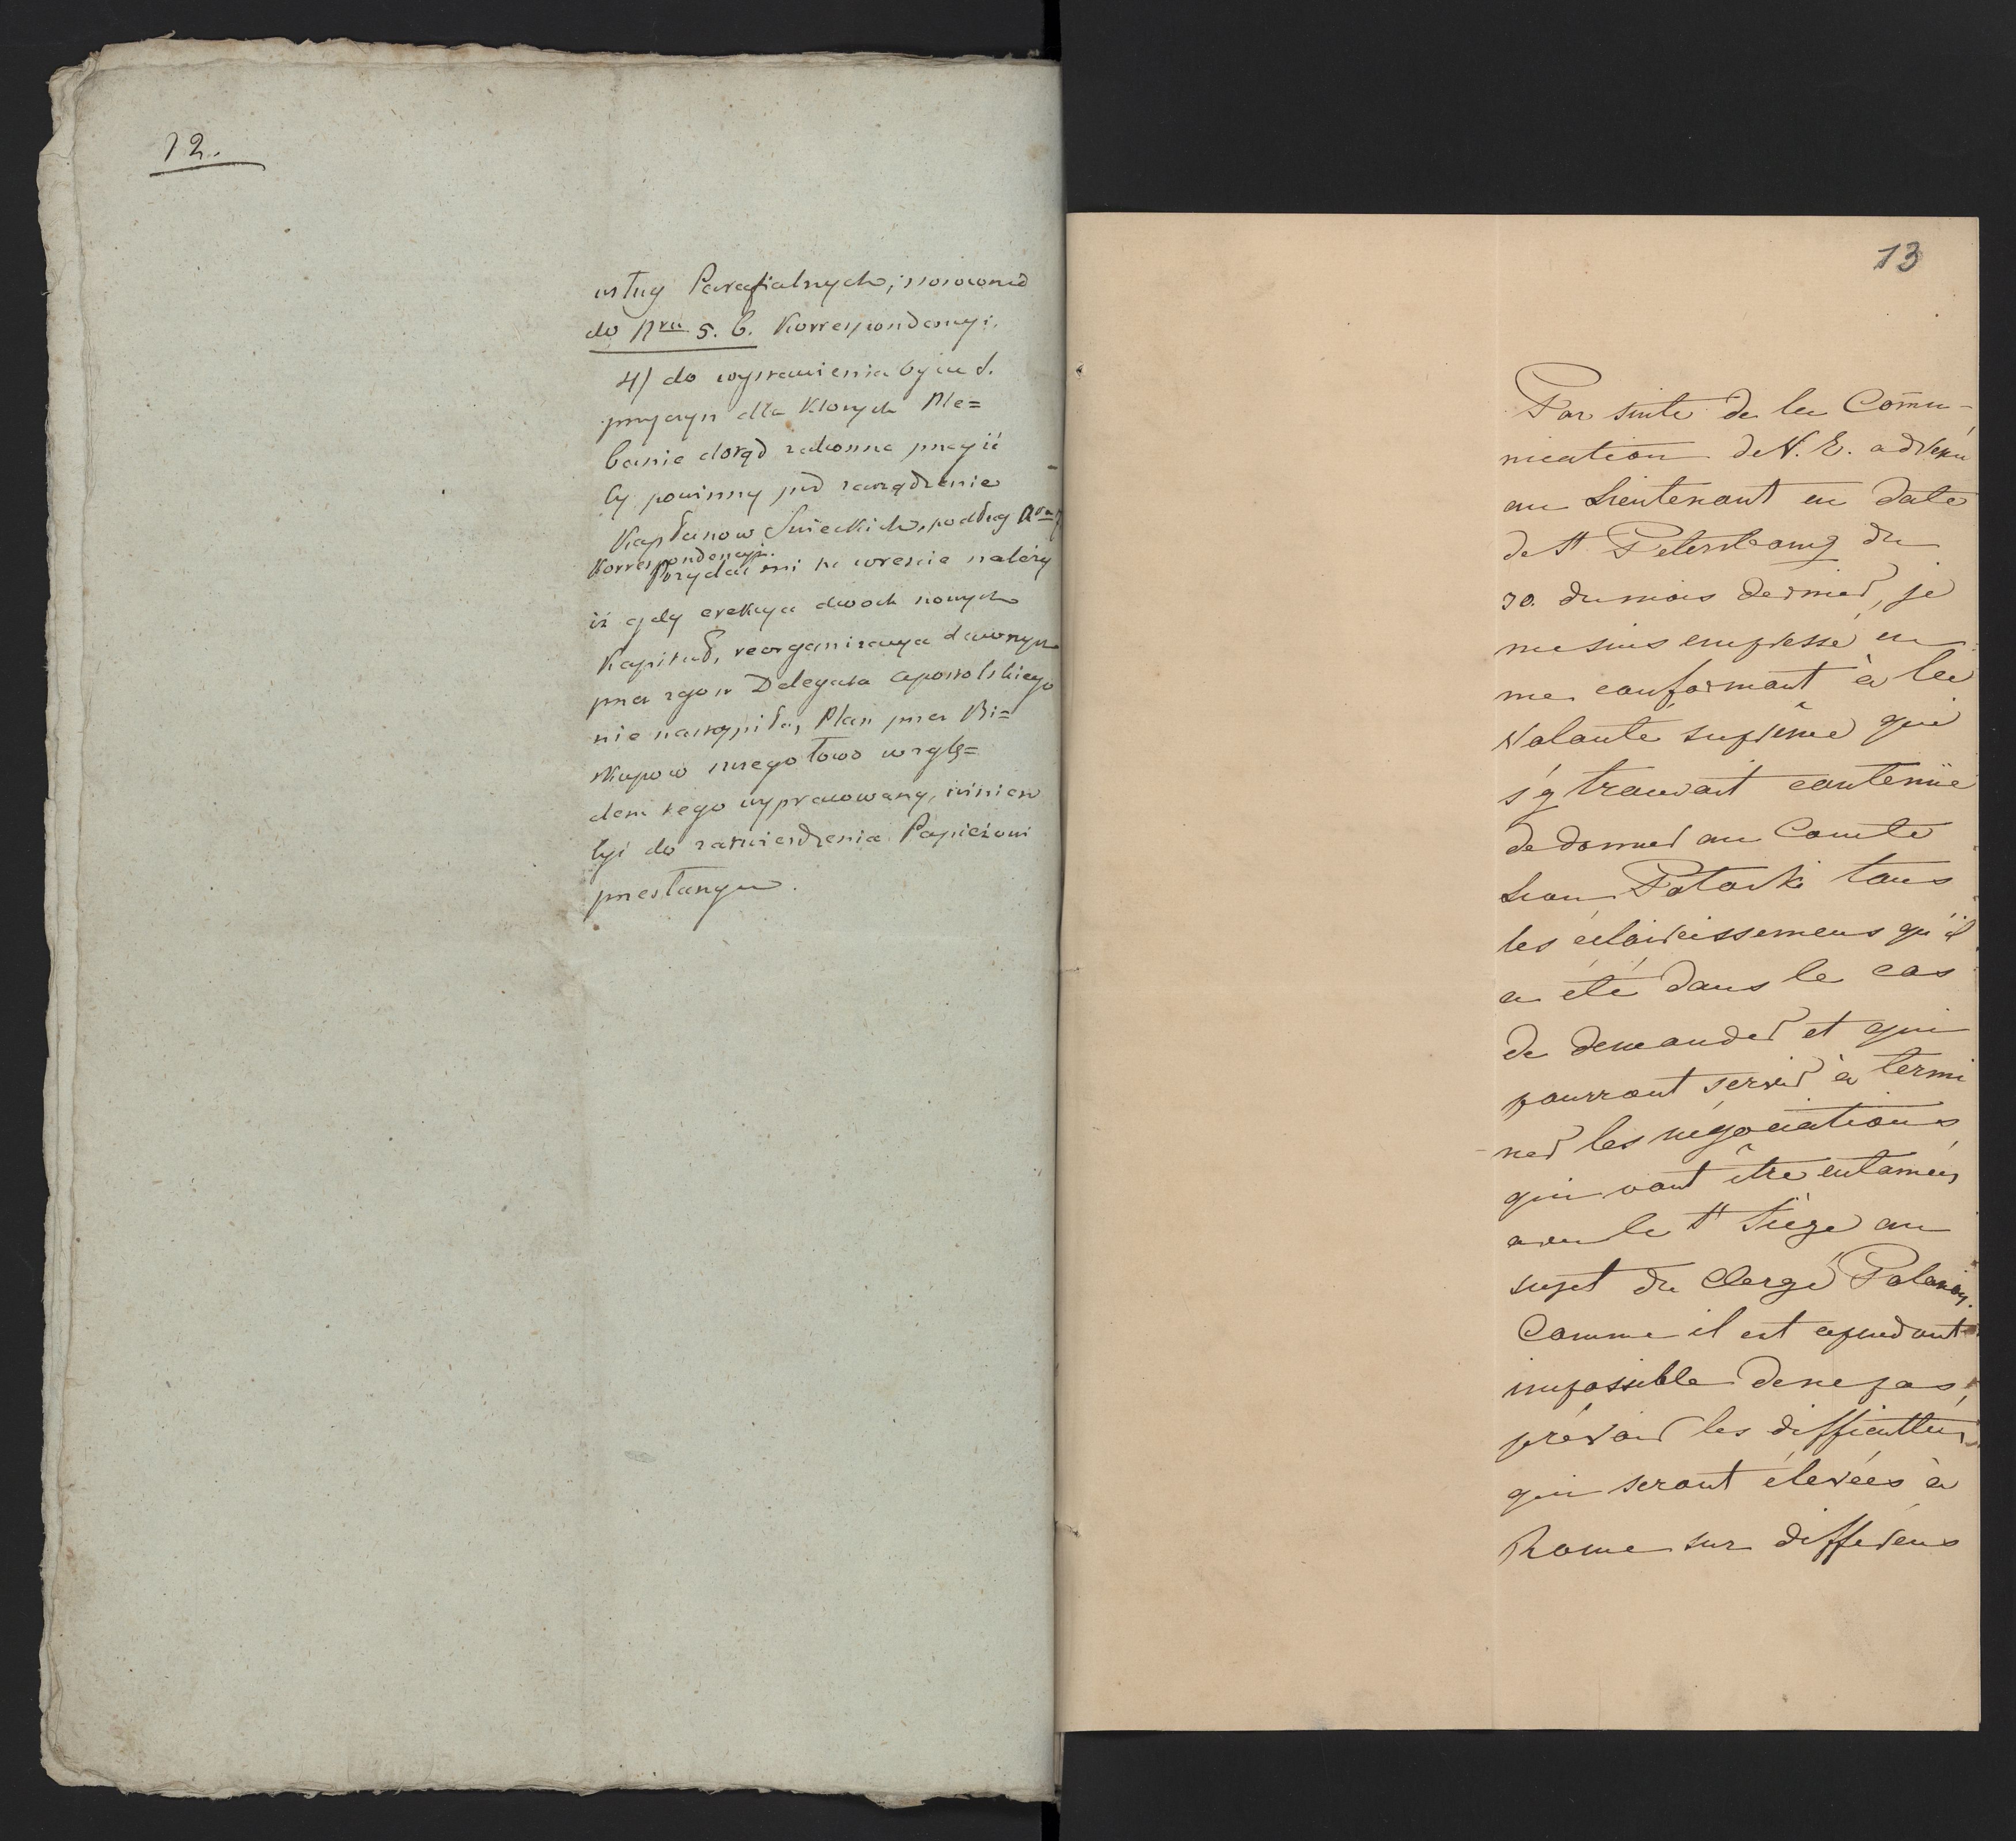 12.
usług Parafialnych, stosownie
do Nru 5. 6. Korrespondencyi.
4) do wystawienia byłud.
przyczyn dla których Ple=
banie dotąd zakonne przejść
by powinny pod zarządzenie
Kapłanow Świeckich, podług Nru 7
Korrespondencyi.
Przydać mi tu wreście należy
iż gdy erekcya dwoch nowych
Kapituł, reorganizacya dawnych
przez zgon Delegata Apostolskiego
nie nastąpiła, Plan przez Bi=
skupow szczegołowo wzglę=
dem tego wypracowany, winien
być do zatwierdzenia Papieżowi
przesłanym.
13
Par suite de la Commu-
nication de V. E. adressée
au Lieutenant en date
de St Petersbourg du
30. du mois dernier, je
me suis empressé en
me conformant à la
volonté suprême qui
s'y trouvait contenüe
de donner au Comte
Léon Potocki tous
les éclaircissemens qu'il
a été dans le cas
de demander et qui
pourront servir à termi
ner les négociations
qui vont être entamées
avec le St Siège au
sujet du Clergé Polonais.
Comme il est cependant
impossible de ne pas
prévoir les difficultés
qui seront élevées à
Rome sur differens